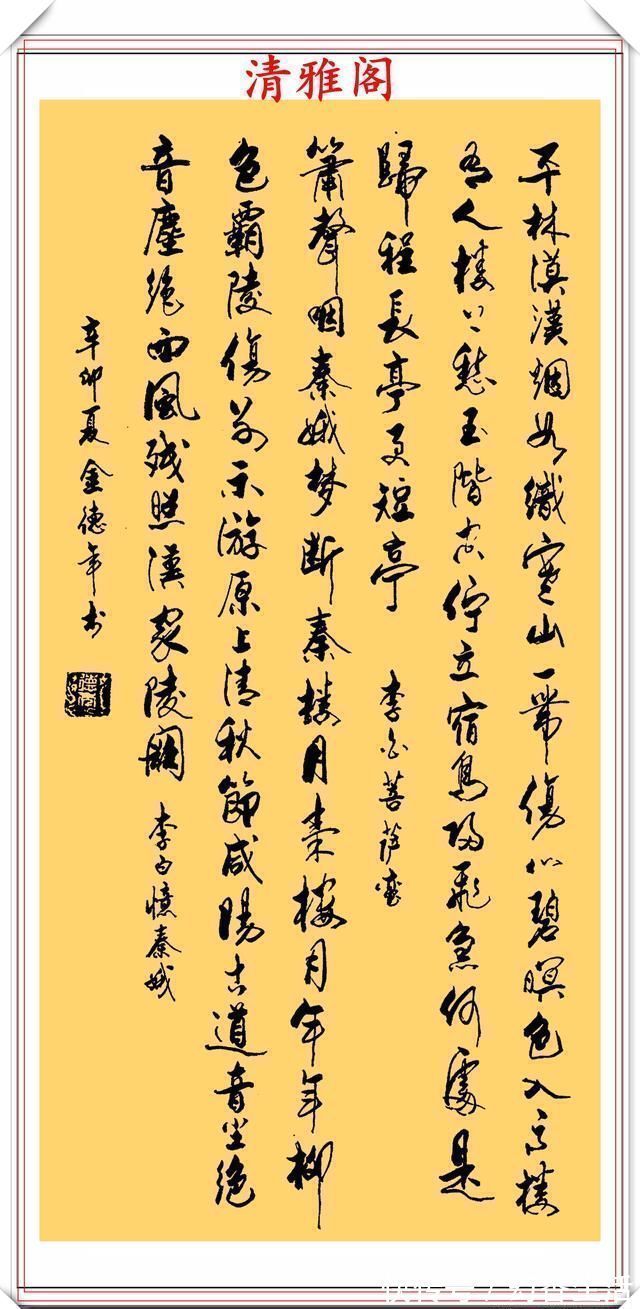 清雅阁
平林漠漠烟如織寒山一帶傷心碧暝色入高楼
有人楼上愁玉階空佇立宿鳥归飛急何處是
歸程長亭更短亭 李白菩萨蛮
簫聲咽秦娥梦断秦楼月秦楼月年年柳
色霸陵傷别乐游原上清秋節咸陽古道音尘绝
音塵绝西風残照漢家陵闕 李白憶秦娥
辛卯夏金德年书